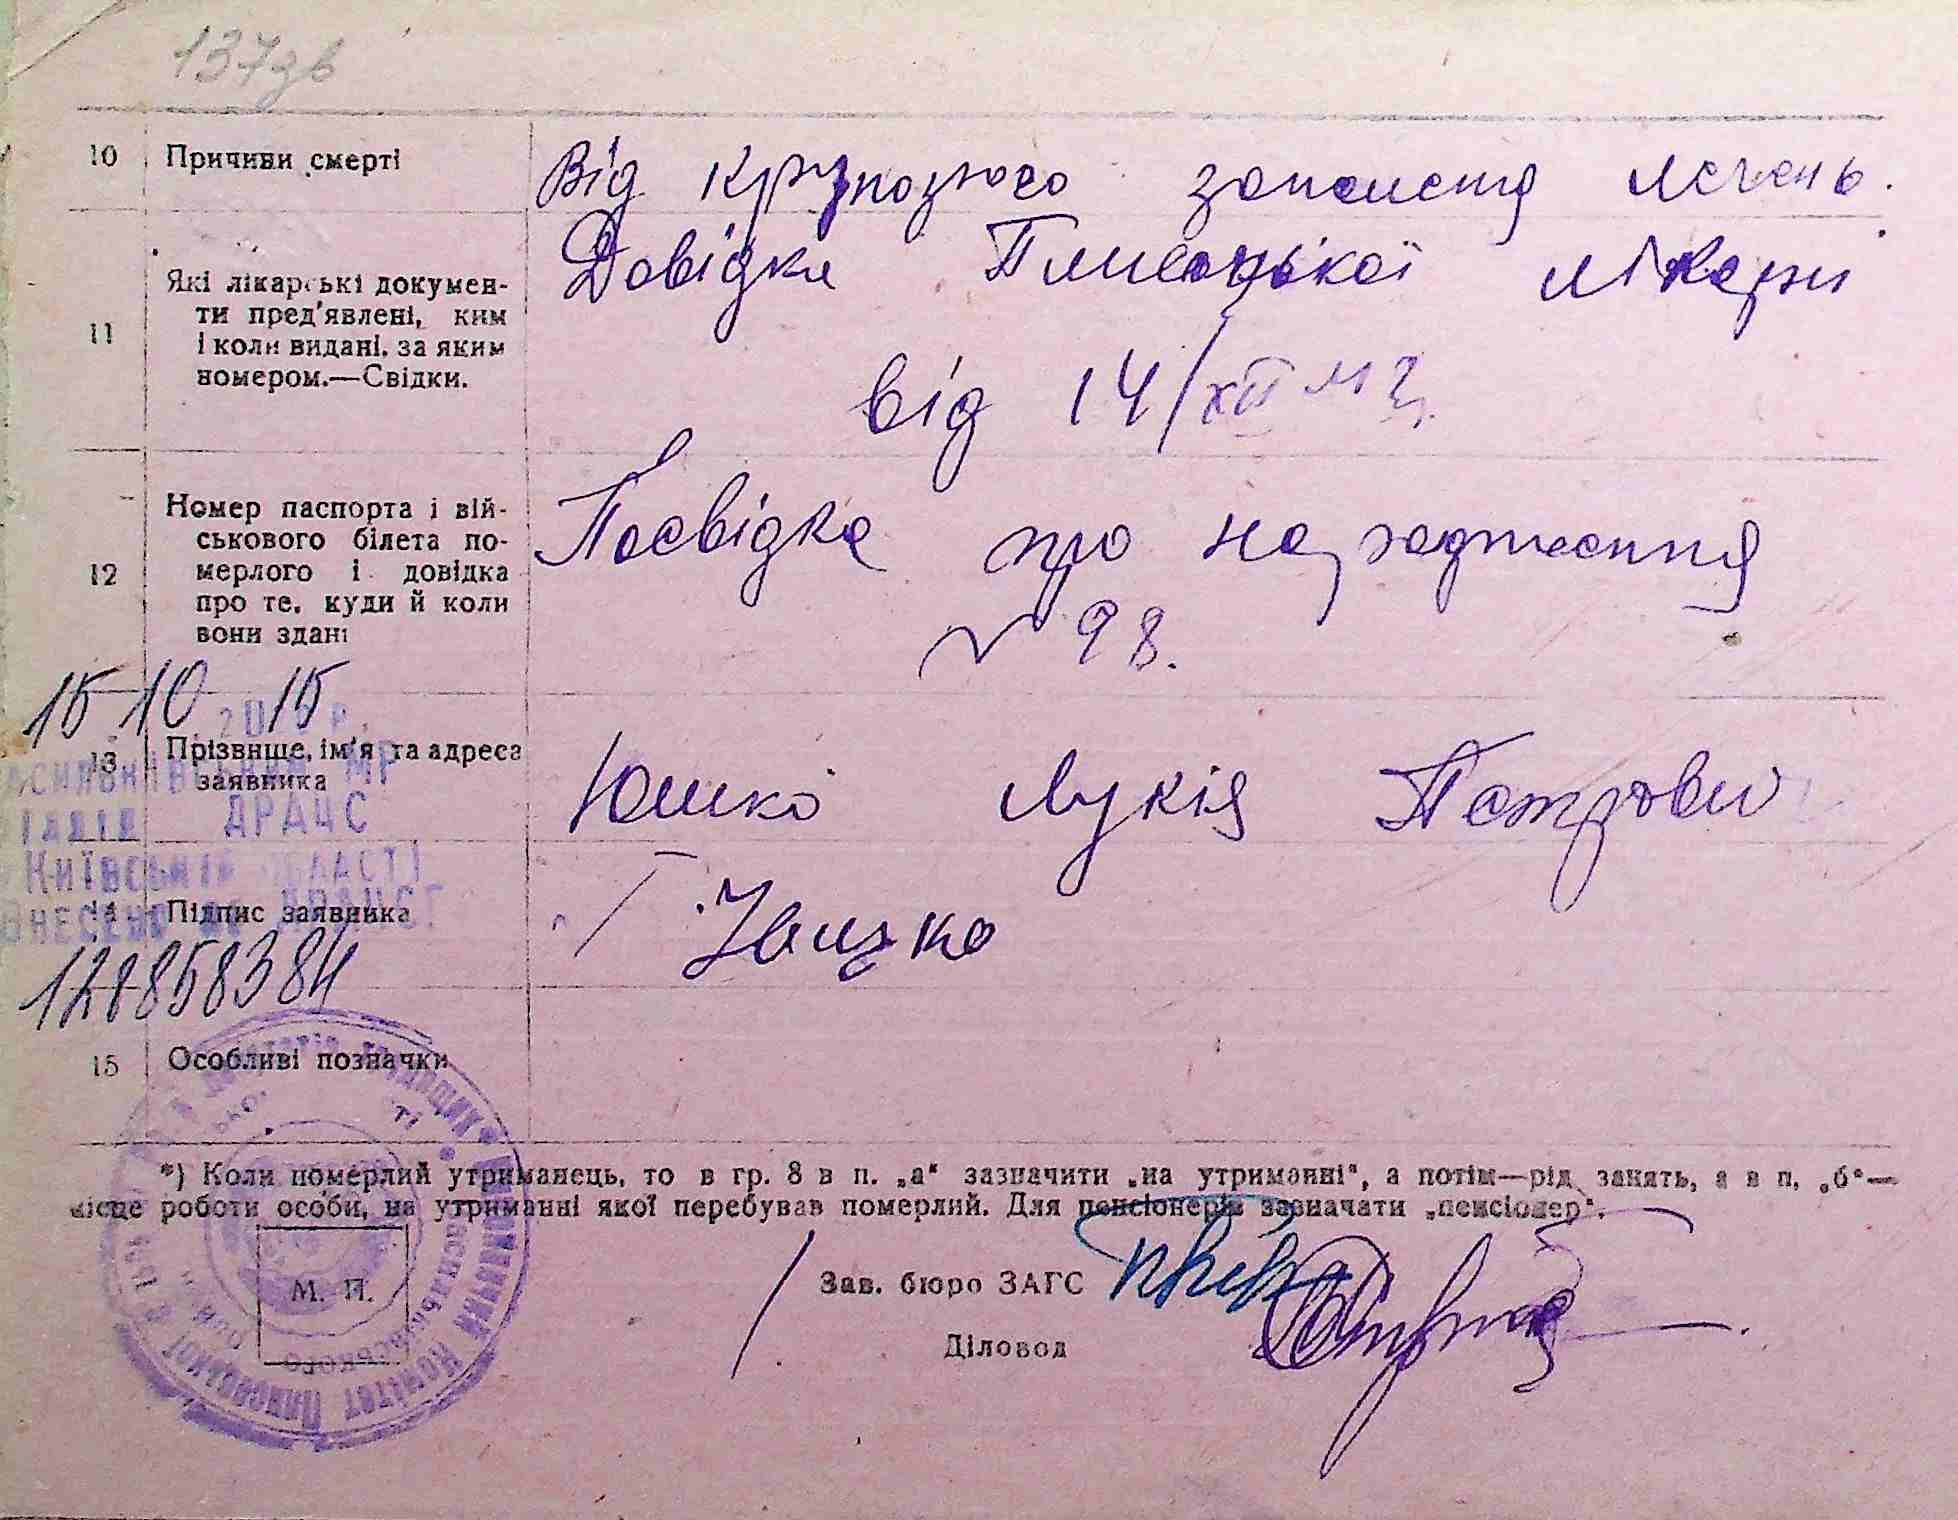 137зв
10 Причини смерті
Від крупозного запаленя лєгень.
11 Які лікарські докумен-
ти пред'явлені, ким
і коли видані, за яким
номером.—Свідки.
Довідка Плисецької лікарні
від 14/XII м ц.
12 Номер паспорта і вій-
ськового білета по-
мерлого і довідка
про те, куди й коли
вони здані
Посвідка про народження
№ 98.
15 10 15
20 р.
13 Прізвище, ім'я та адреса
заявника
Юшко Лукія Петрови
МР
ДРАЦС
КИЇВСЬКІЙ ОБЛАСТІ
14 Підпис заявника
ВНЕСЕНО ДО ДРАЦСГ
128858384
15 Особливі позначки
*) Коли померлий утриманець, то в гр. 8 в п. „а“ зазначити „на утриманні“, а потім—рід занять, а в п. „б“—
місце роботи особи, на утриманні якої перебував померлий. Для пенсіонерів зазначати „пенсіонер“.
М. П.
Зав. бюро ЗАГС
Діловод
Виконавчий комітет Плисецької
Васильківського